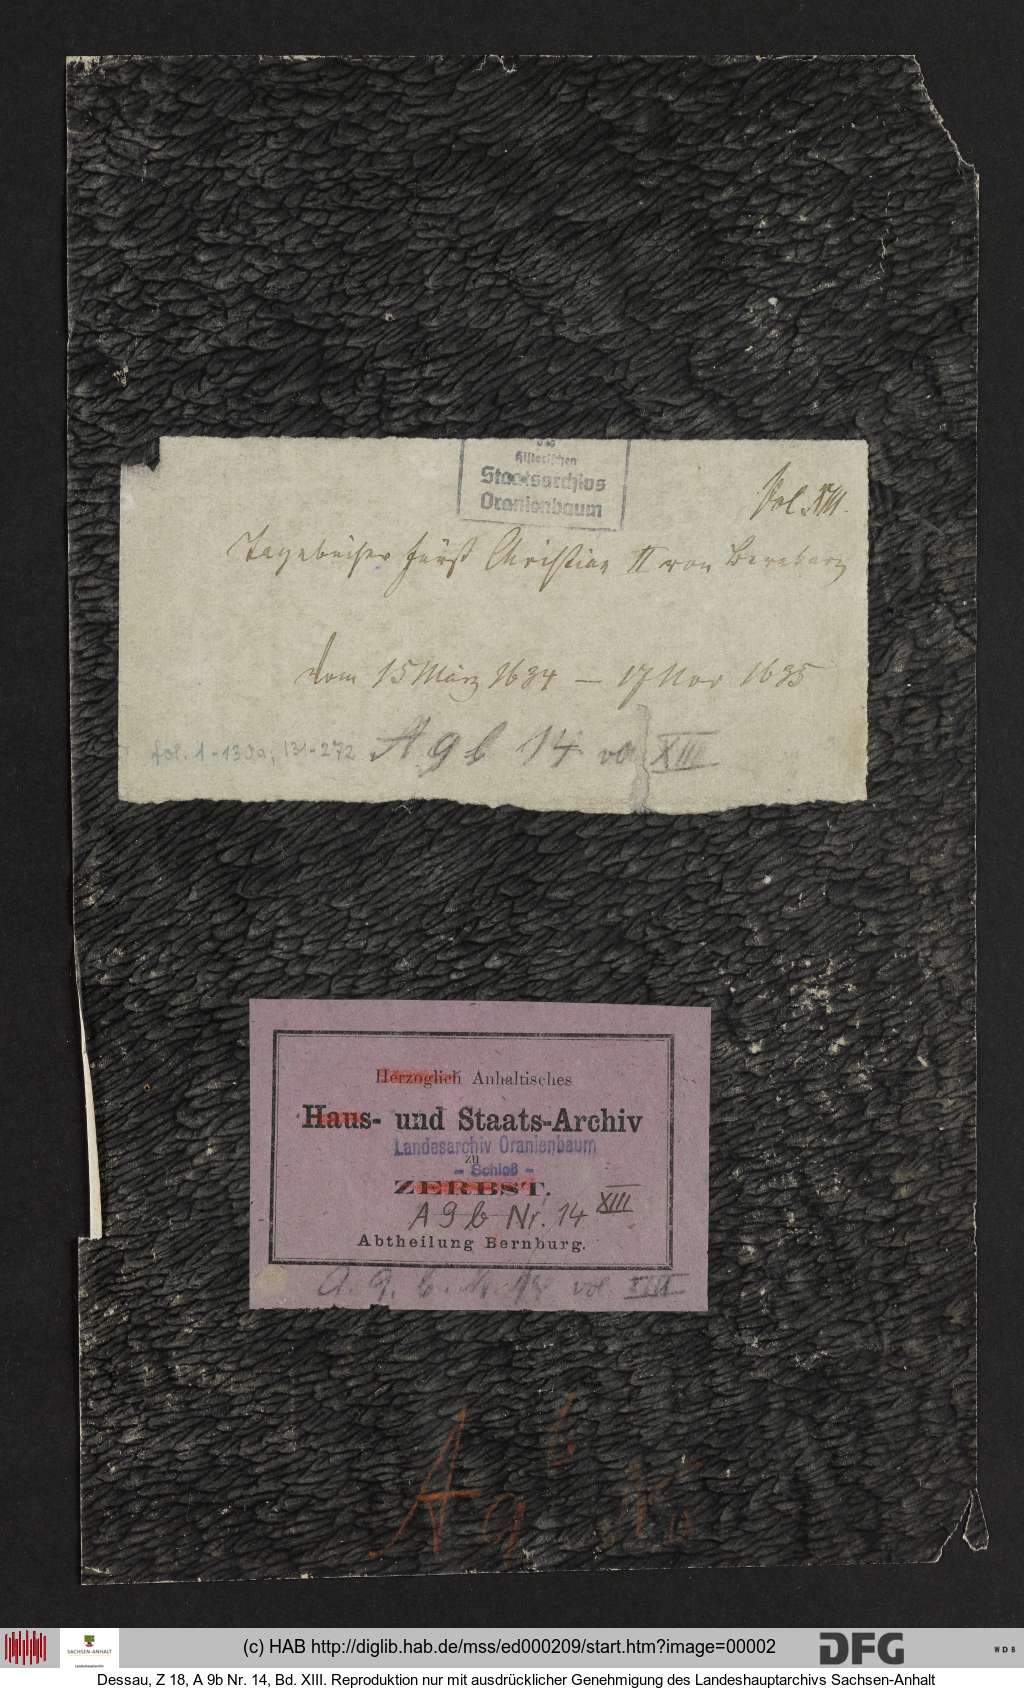 des
Historischen
Staatsarchivs
Oranienbaum
Vol. XIII.
Tagebücher Fürst Christian II von Bernburg
vom 15 März 1634 — 17 Nov 1635
fol. 1-130a, 131-272 A 9 b 14 vol XIII
Herzoglich Anhaltisches
Haus- und Staats-Archiv
Landesarchiv Oranienbaum
zu
- Schloß -
ZERBST.
A 9 b Nr. 14 XIII
Abtheilung Bernburg.
A. 9. b. Nr. 14 vol XIII
A 9 b
SACHSEN-ANHALT
Landeshauptarchiv
(c) HAB http://diglib.hab.de/mss/ed000209/start.htm?image=00002
DFG
WDB
Dessau, Z 18, A 9b Nr. 14, Bd. XIII. Reproduktion nur mit ausdrücklicher Genehmigung des Landeshauptarchivs Sachsen-Anhalt